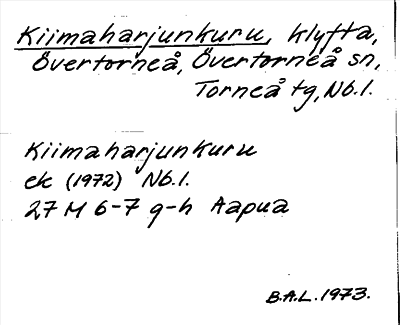 Kiimaharjunkuru, klyfta,
Övertorneå, Övertorneå sn,
Torneå tg, Nb.l.
Kiimaharjunkuru
ek (1972) Nb.l.
27 M 6-7 g-h Aapua
B.A.L. 1973.